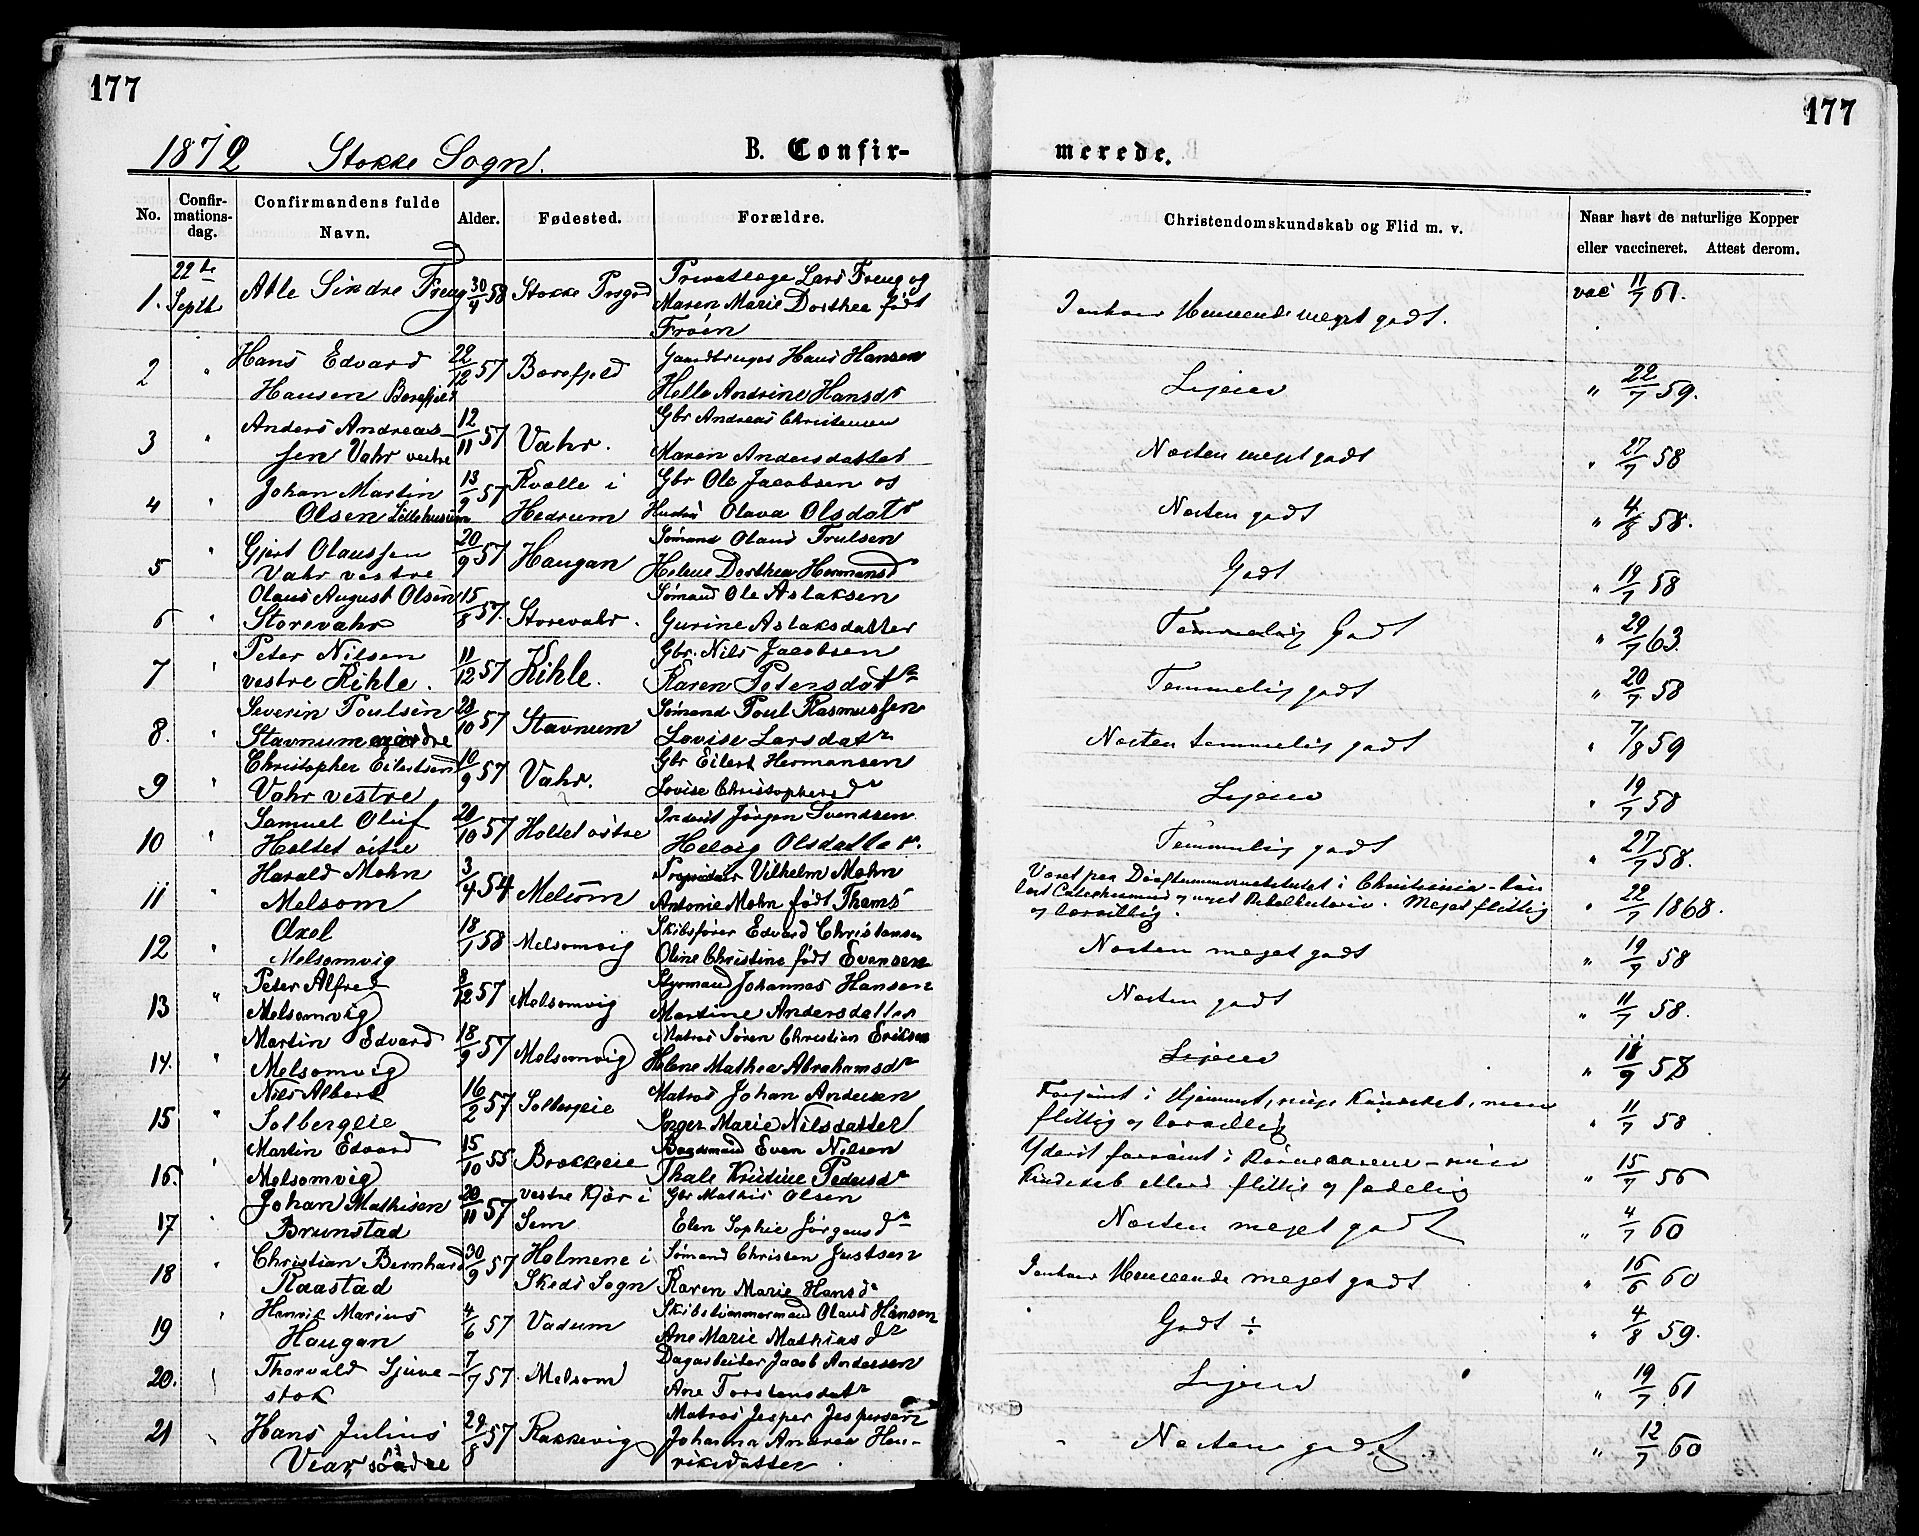 177
177
1872 Stokke Sogn. B. Confir- merede.
No. Confir-mations-dag. Confirmandens fulde Navn. Alder. Fødested. Forældre. Christendomskundskab og Flid m. v. Naar havt de naturlige Kopper eller vaccineret. Attest derom.
22de Privatlæge Lars Freng og
1. Septb Atle Sindre Freng 30/4 58 Stokke Prgrd Maren Marie Dorthea født meget godt. vac 11/7 61.
Frøen
Hans Edvard 22/12 57 Borefjeld Gaardbruger Hans Hansen
2 " Hansen Borefjeld Helle Andrine Hansdr Ligesaa " 22/7 59.
Anders Andreas- 12/11 57 Vahr. Gbr Andreas Christensen
3 " sen Vahr vestre Maren Andersdatter Næsten meget godt " 27/7 58
Johan Martin 13/9 57 Kvælle i Gbr Ole Jacobsen og
4 " Olsen Hedrum Hustru Olava Olsdatr Næsten godt " 4/8 58.
Gjert Olaussen 20/9 57 Haugan Sømand Olaus Trulsen
5 " Vahr vestre Helene Dorthea Hermansdr Godt " 19/7 58
Olaus August Olsen 15/8 57. Storevahr. Sømand Ole Aslaksen
6 " Storevahr Gurine Aslaksdatter Temmelig Godt " 29/7 63.
Peter Nilsen 11/12 57 Kihle. Gbr. Nils Jacobsen
7 " vestre Kihle. Karen Petersdatr Temmelig godt " 20/7 58
Severin Poulsen 28/10 57 Stavnum Sømand Poul Rasmussen
8. " Stavnum Lovise Larsdatr Næsten temmelig godt " 7/8 59
Christopher Eilertsen 10/9 57 Vahr. Gbr Eilert Hermansen
9 " Vahr vestre Lovise Christophersdr Ligesaa " 19/7 58
Samuel Oluf 20/10 57 Holtet østre Inderst Jørgen Svendsen
10 " Holtet østre Helvig Olsdatter. Temmelig godt " 27/7 58.
Harald Mohn 3/4 54 Melsom Proprietair Vilhelm Mohn Været paa Døvstummeinstitutet i Christiania - kun
11 Melsom Antonie Mohn født Thams lært Catechismus og noget Bibelhistorie. Meget flittig " 22/7 1868.
og lærvillig.
Axel 18/1 58 Melsomvig Skibsfører Edvard Christensen
12 " Melsomvig Oline Christine født Evensen Næsten meget godt " 19/7 58
Peter Alfred 8/12 57 Melsomvig Styrmand Johannes Hansen
13 " Melsomvig Martine Andersdatter Næsten godt " 11/7 58.
Martin Edvard 18/9 57 Melsomvig Matros Søren Christian Eriksen
14. " Melsomvig Helene Mathea Abrahamsdr Ligesaa " 18/9 58
Nils Albert 16/2 57 Solbergeie Matros Johan Andersen Forsømt i Hjemmet, ringe Kundskab, men
15 " Solbergeie Inger Marie Nilsdatter flittig og lærvillig " 11/7 58
Martin Edvard 15/10 55 Brækkeeie Baadsmand Even Nilsen Yderst forsømt i Børneaarene -
16. " Melsomvig Thale Kristine Pedersdr Kundskab ellers flittig og sædelig " 15/7 56
Johan Mathisen 20/11 57 vestre Kjær i Gbr Mathis Olsen
17 " Brunstad Sem Elen Sophie Jørgensdr Næsten meget godt " 4/7 60
Christian Bernhard 30/9 57 Holmene i Sømand Christen Justsen
18 " Raastad Skeds Sogn Karen Marie Hansdr meget godt " 16/6 60
Henrik Marius 4/6 57 Vadum Skibstømmermand Olaus Hansen
19 " Haugan Ane Marie Mathiasdr Godt ÷ " 4/8 59.
Thorvald Sjuve- 7/7 57. Melsom Dagarbeider Jacob Andersen
20. " stok Ane Torstensdatr Ligesaa " 19/7 61
Hans Julius 29/8 57 Rakkevig Matros Jesper Jespersen
21 " Vear søndre Johanna Andrea Hen- Næsten godt " 12/7 60
riksdatter.